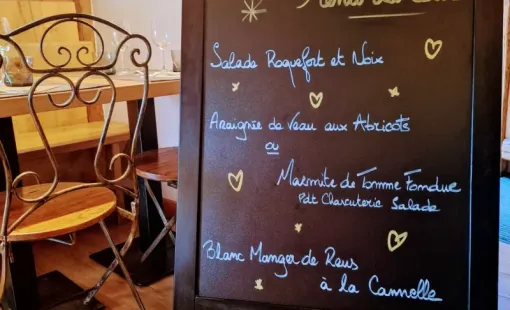 Menu du
Salade Roquefort et Noix
Araignée de Veau aux Abricots
ou
Marmite de Tomme Fondue
Pdt Charcuterie Salade
Blanc Manger de Reus
à la Cannelle